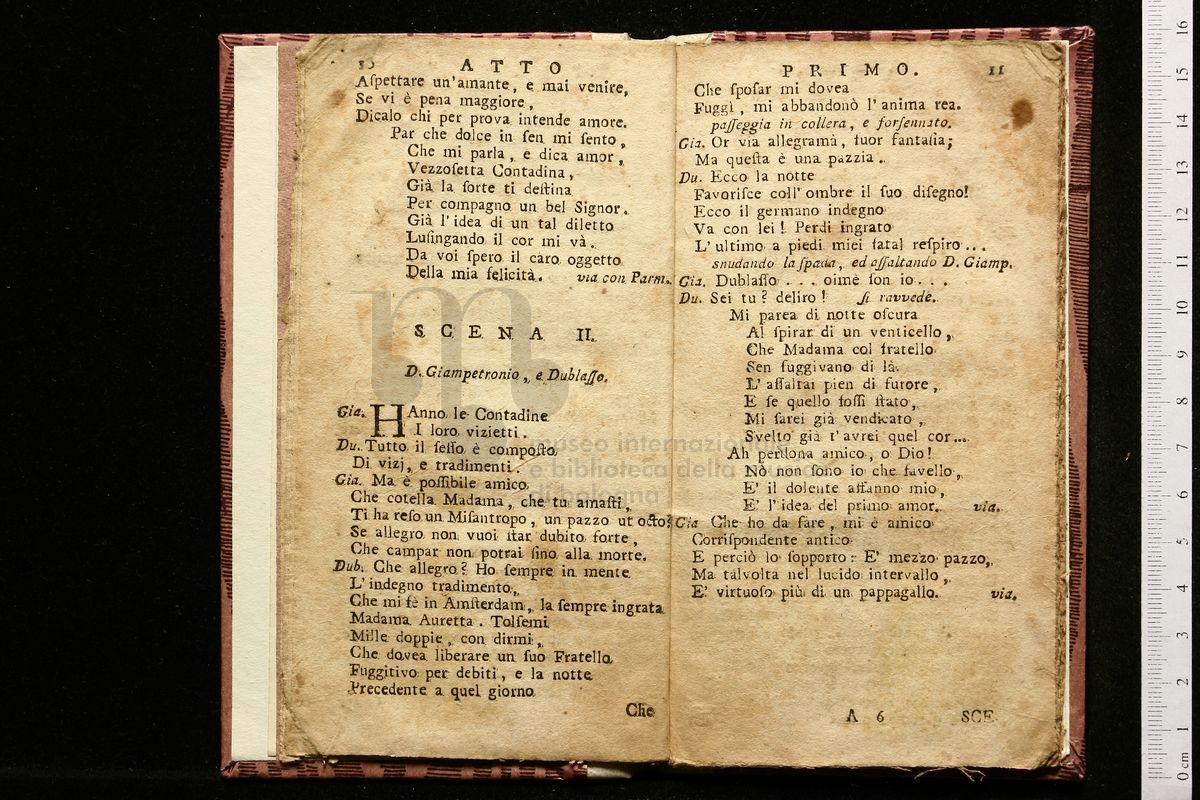 10 ATTO
Aſpettare un'amante, e mai venire,
Se vi è pena maggiore,
Dicalo chi per prova intende amore.
Par che dolce in ſen mi ſento,
Che mi parla, e dica amor,
Vezzoſetta Contadina,
Già la ſorte ti deſtina
Per compagno un bel Signor.
Già l'idea di un tal diletto
Luſingando il cor mi và.
Da voi ſpero il caro oggetto
Della mia felicità. via con Parm.
SCENA II.
D. Giampetronio, e Dublaſſo.
Gia. HAnno le Contadine
I loro vizietti.
Du. Tutto il ſeſſo è compoſto
Di vizj, e tradimenti.
Gia. Ma è poſſibile amico,
Che coteſta Madama, che tu amaſti,
Ti ha reſo un Miſantropo, un pazzo ut octo?
Se allegro non vuoi ſtar dubito forte,
Che campar non potrai ſino alla morte.
Dub. Che allegro? Ho ſempre in mente
L'indegno tradimento,
Che mi fè in Amſterdam, la ſempre ingrata
Madama Auretta. Tolſemi
Mille doppie, con dirmi,
Che dovea liberare un ſuo Fratello
Fuggitivo per debiti, e la notte
Precedente a quel giorno
Che
PRIMO. 11
Che ſpoſar mi dovea
Fuggì, mi abbandonò l'anima rea.
paſſeggia in collera, e forſennato.
Gia. Or via allegramà, fuor fantaſia;
Ma queſta è una pazzia.
Du. Ecco la notte
Favoriſce coll'ombre il ſuo diſegno!
Ecco il germano indegno
Va con lei! Perdi ingrato
L'ultimo a piedi miei fatal reſpiro...
snudando la ſpada, ed aſſaltando D. Giamp.
Gia. Dublaſſo ... oimè ſon io ...
Du. Sei tu? deliro! ſi ravvede.
Mi parea di notte oſcura
Al ſpirar di un venticello,
Che Madama col fratello
Sen fuggivano di là.
L'aſſaltai pien di furore,
E ſe quello foſſi ſtato,
Mi farei già vendicato,
Svelto già t'avrei quel cor...
Ah perdona amico, o Dio!
Nò non ſono io che favello,
E' il dolente affanno mio,
E' l'idea del primo amor. via.
Gia Che ho da fare, mi è amico
Corriſpondente antico
E perciò lo ſopporto: E' mezzo pazzo,
Ma talvolta nel lucido intervallo,
E' virtuoſo più di un pappagallo. via.
A 6 SCE
museo internazionale
e biblioteca della musica
di bologna
16
15
14
13
12
11
10
9
8
7
6
5
4
3
2
1
0 cm